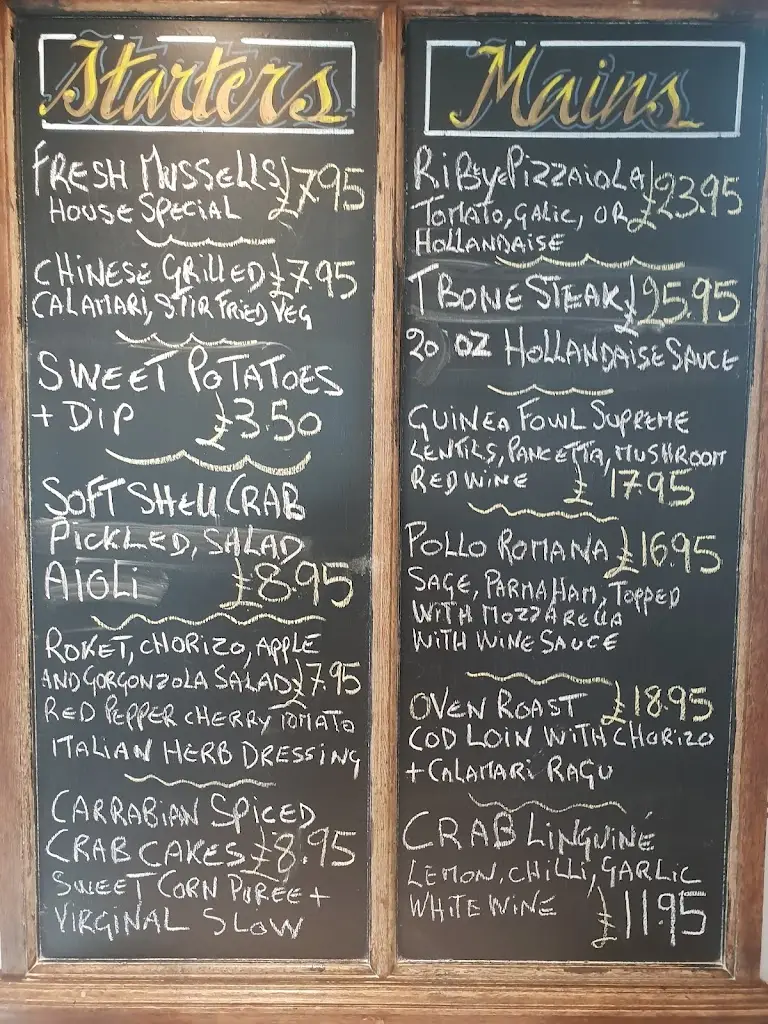 Starters
FRESH MUSSELLS £7.95
HOUSE SPECIAL
CHINESE GRILLED £7.95
CALAMARI, STIR FRIED VEG
SWEET POTATOES
+ DIP £3.50
SOFT SHELL CRAB
PICKLED, SALAD
AIOLI £8.95
ROKET, CHORIZO, APPLE
AND GORGONZOLA SALAD £7.95
RED PEPPER CHERRY TOMATO
ITALIAN HERB DRESSING
CARRABIAN SPICED
CRAB CAKES £8.95
SWEET CORN PUREE +
VIRGINAL SLOW
Mains
RIBEYE PIZZAIOLA £23.95
TOMATO, GALIC, OR
HOLLANDAISE
T BONE STEAK £25.95
20 OZ HOLLANDAISE SAUCE
GUINEA FOWL SUPREME
LENTILS, PANCETTA, MUSHROOM
RED WINE £17.95
POLLO ROMANA £16.95
SAGE, PARMA HAM, TOPPED
WITH MOZZARELLA
WITH WINE SAUCE
OVEN ROAST £18.95
COD LOIN WITH CHORIZO
+ CALAMARI RAGU
CRAB LINGUINE
LEMON, CHILLI, GARLIC
WHITE WINE £11.95